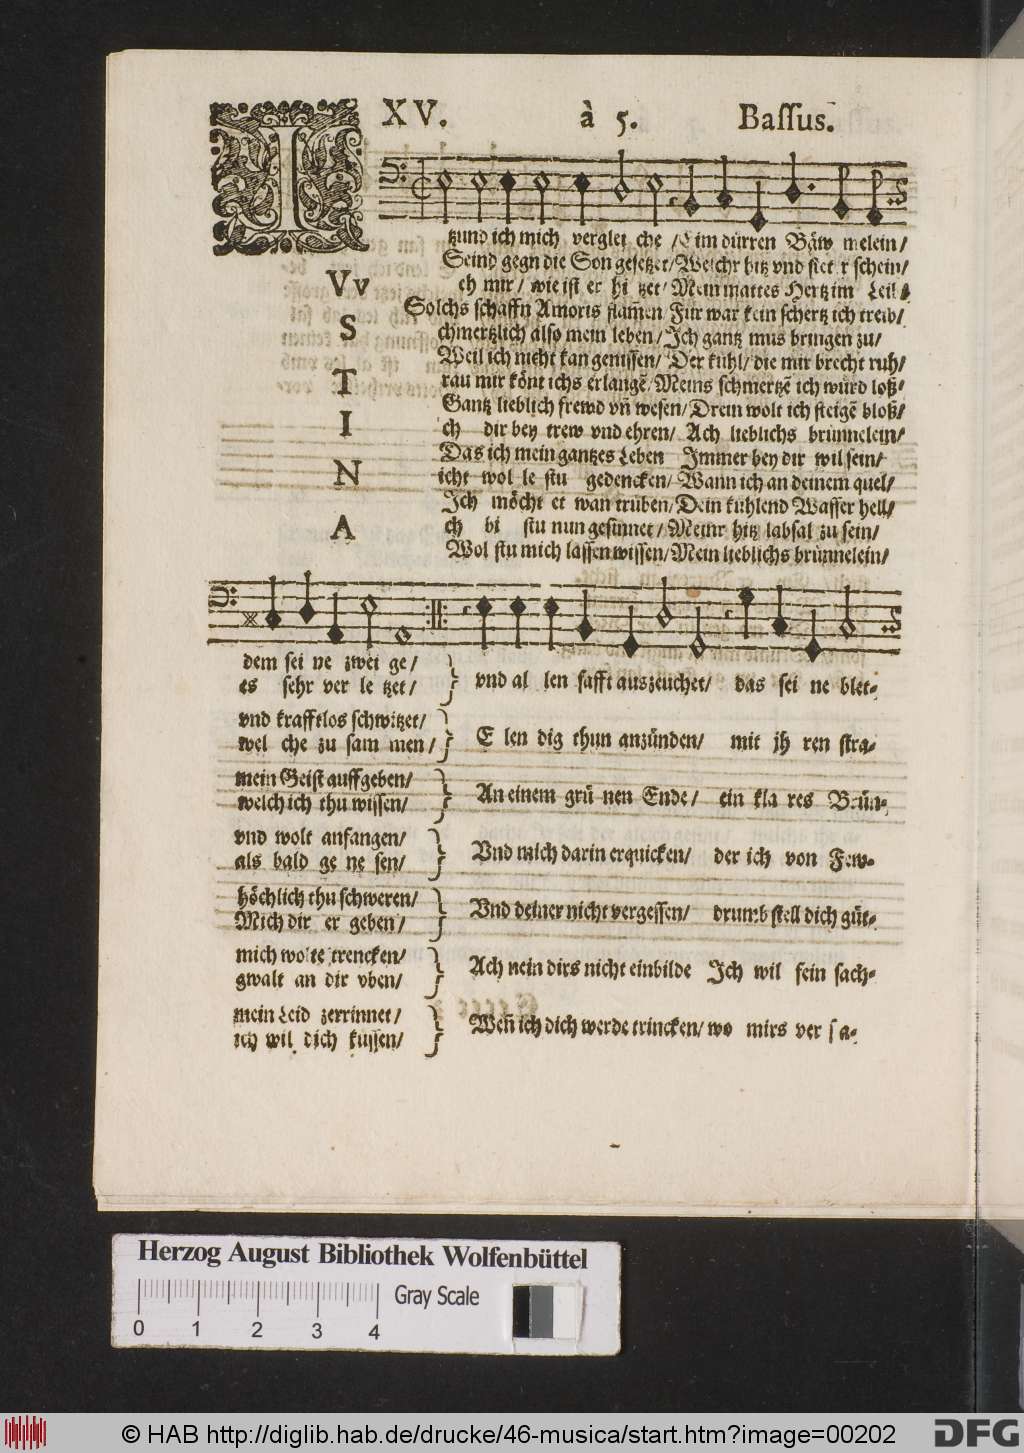 XV. à 5. Bassus.
I
tzund ich mich verglei che / Eim dürren Bäw melein /
Seind gegn die Son gesetzet / Welchr hitz vnd steter schein /
Vv
ch mir / wie ist er hi tzet / Mein mattes Hertz im Leib /
Solchs schaffn Amoris flam̃en Für war kein schertz ich treib /
S
chmertzlich also mein leben / Ich gantz mus bringen zu /
Weil ich nicht kan genissen / Der kühl / die mir brecht ruh /
T
rau mir könt ichs erlangẽ / Meins schmertzẽ ich würd loß /
Gantz lieblich frewd vñ wesen / Drein wolt ich steigẽ bloß /
I
ch dir bey trew vnd ehren / Ach lieblichs brünnelein /
Das ich mein gantzes Leben Immer bey dir wil sein /
N
icht wol le stu gedencken / Wann ich an deinem quel /
Ich möcht et wan trüben / Dein kühlend Wasser hell /
A
ch bi stu nun gesinnet / Meinr hitz labsal zu sein /
Wol stu mich lassen wissen / Mein lieblichs brünnelein /
dem sei ne zwei ge /
es sehr ver le tzet /
vnd al len safft auszeuchet / das sei ne blet-
vnd krafftlos schwitzet /
wel che zu sam men /
E len dig thun anzünden / mit jh ren stra-
mein Geist auffgeben /
welch ich thu wissen /
An einem grü nen Ende / ein kla res Brün-
vnd wolt anfangen /
als bald ge ne sen /
Vnd mich darin erquicken / der ich von Few-
höchlich thu schweren /
Mich dir er geben /
Vnd deiner nicht vergessen / drumb stell dich güt-
mich wolte trencken /
gwalt an dir vben /
Ach nein dirs nicht einbilde Ich wil fein sach-
mein Leid zerrinnet /
ich wil dich küssen /
Weñ ich dich werde trincken / wo mirs ver sa-
Herzog August Bibliothek Wolfenbüttel
0 1 2 3 4 Gray Scale
© HAB http://diglib.hab.de/drucke/46-musica/start.htm?image=00202
DFG